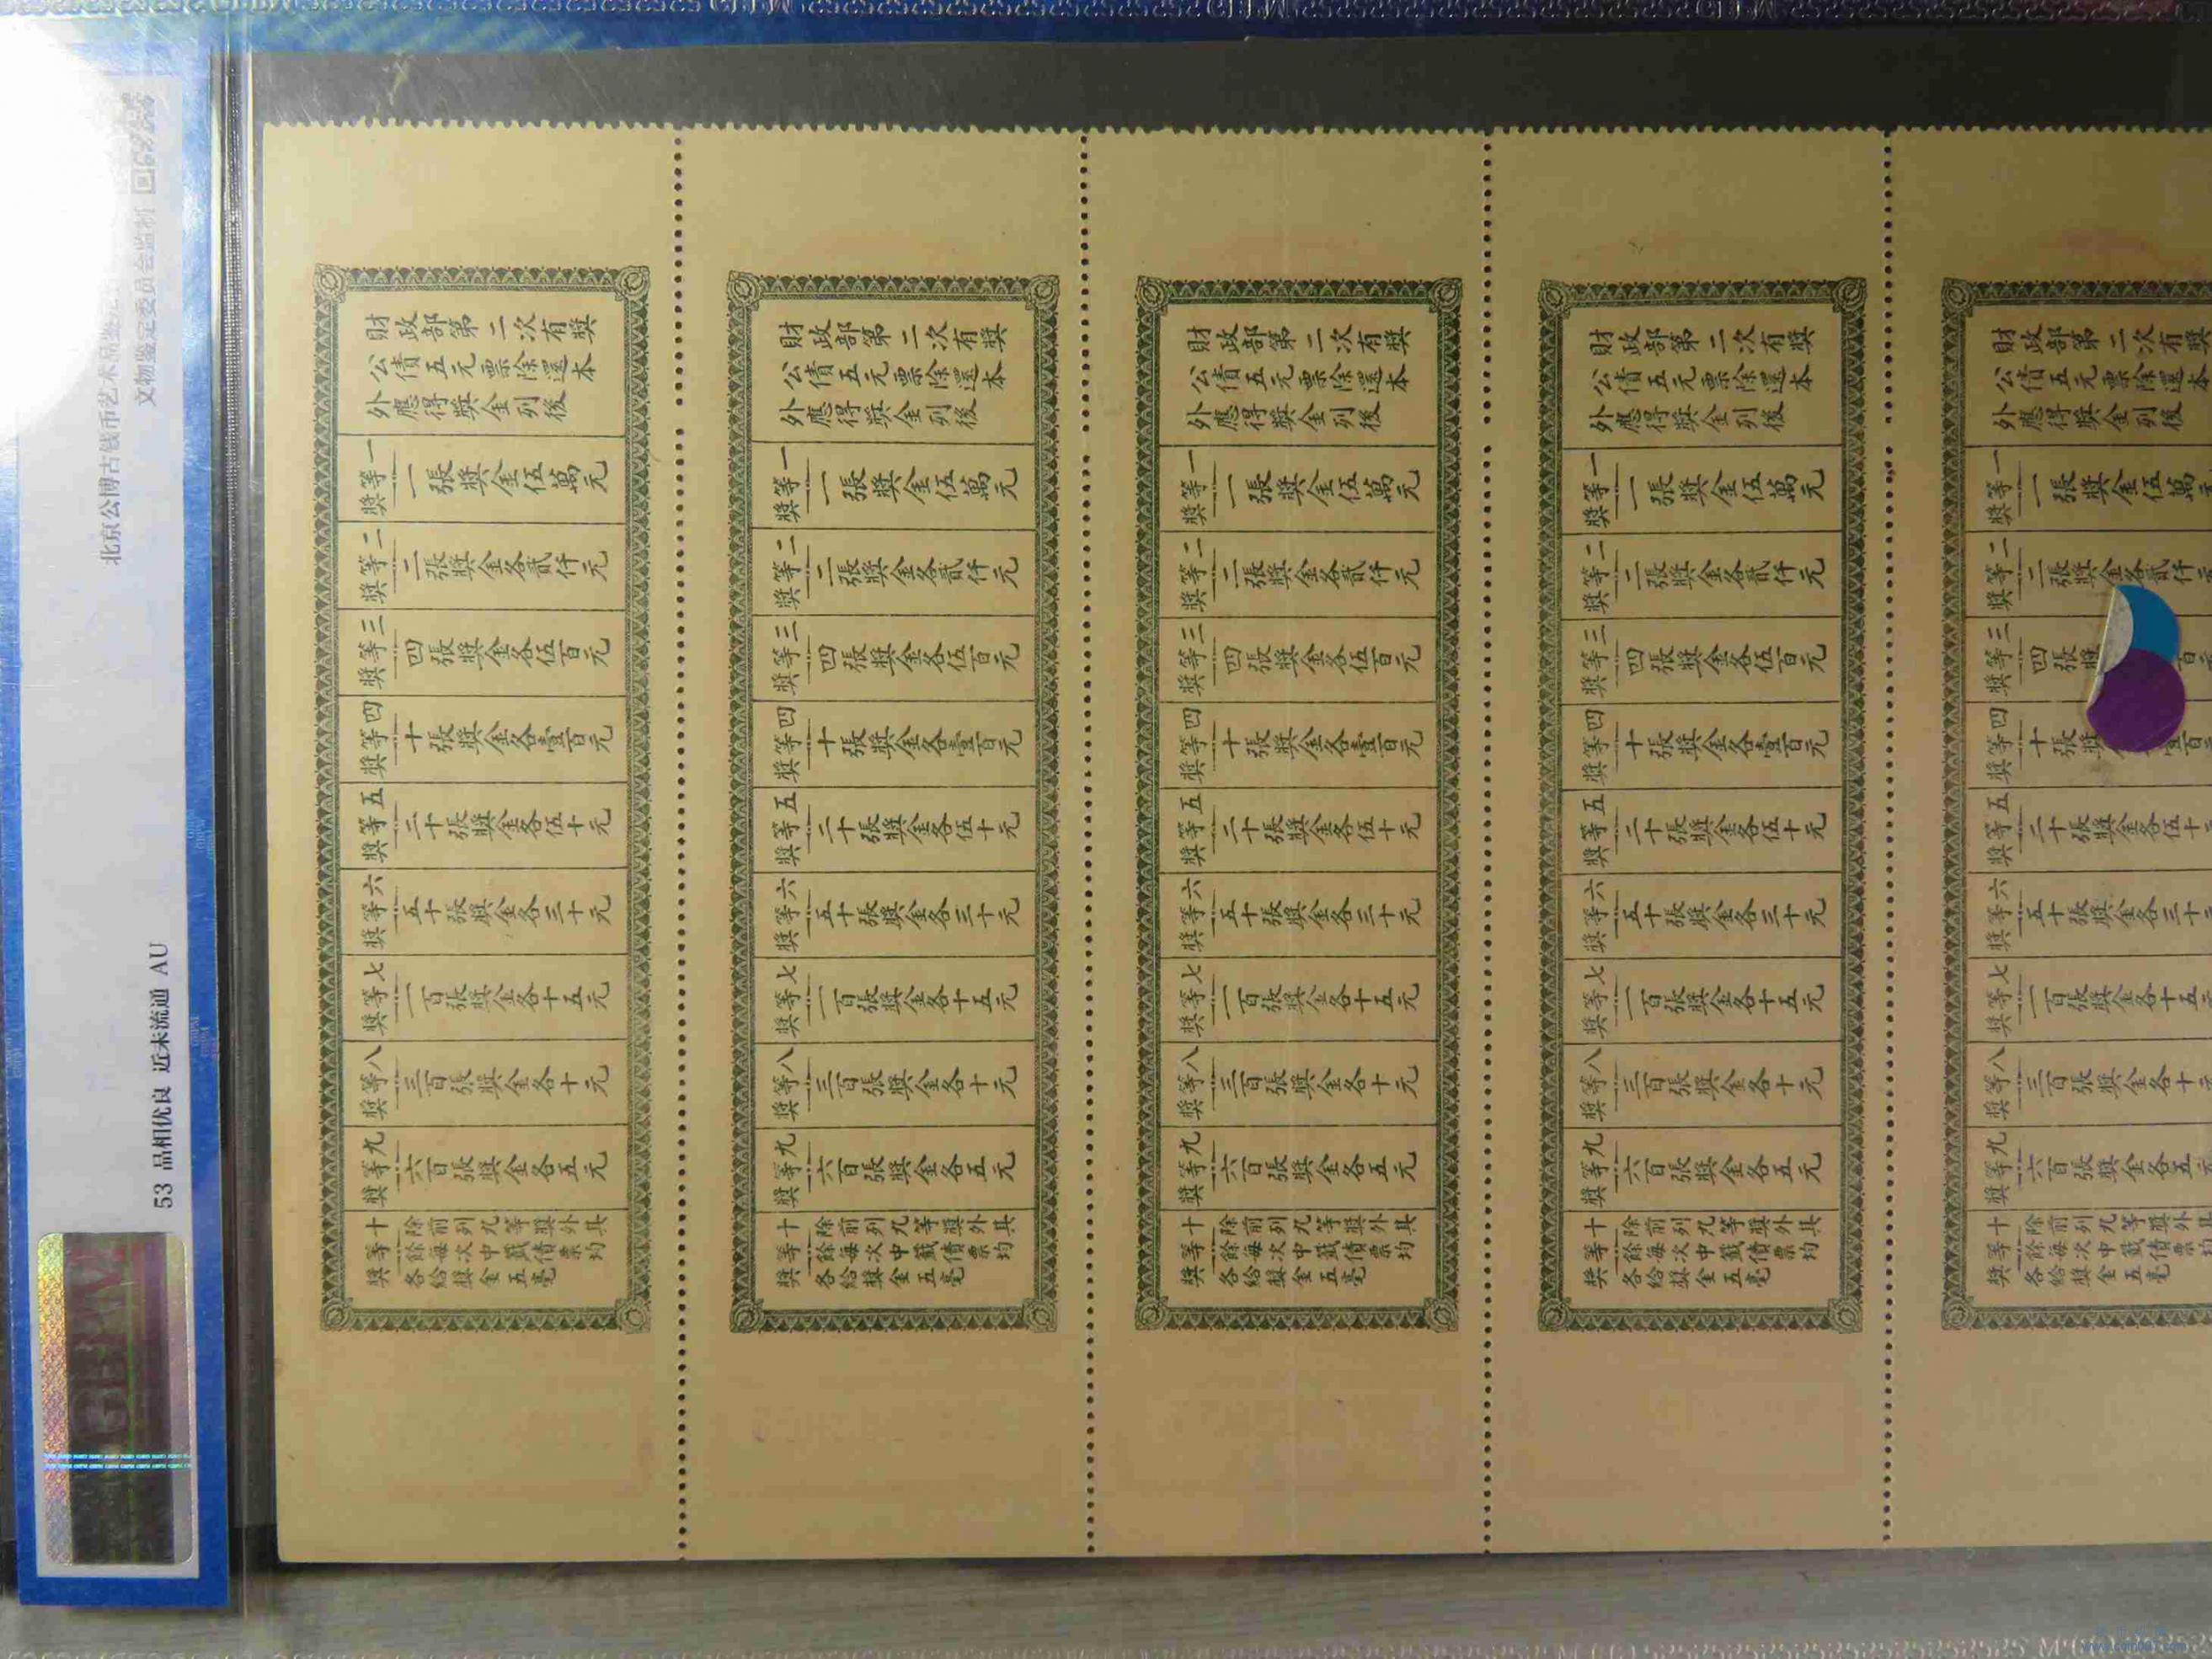 北京公博古钱币艺术品鉴定
文物鉴定委员会监制
53 品相优良 近未流通 AU
財政部第二次有獎
公債五元票除還本
外應得獎金列後
一等獎 一張獎金伍萬元
二等獎 二張獎金各貳仟元
三等獎 四張獎金各伍百元
四等獎 十張獎金各壹百元
五等獎 二十張獎金各伍十元
六等獎 五十張獎金各三十元
七等獎 一百張獎金各十五元
八等獎 三百張獎金各十元
九等獎 六百張獎金各五元
十等獎 除前列九等獎外其
餘每次中籤債票均
各給獎金五毫
財政部第二次有獎
公債五元票除還本
外應得獎金列後
一等獎 一張獎金伍萬元
二等獎 二張獎金各貳仟元
三等獎 四張獎金各伍百元
四等獎 十張獎金各壹百元
五等獎 二十張獎金各伍十元
六等獎 五十張獎金各三十元
七等獎 一百張獎金各十五元
八等獎 三百張獎金各十元
九等獎 六百張獎金各五元
十等獎 除前列九等獎外其
餘每次中籤債票均
各給獎金五毫
財政部第二次有獎
公債五元票除還本
外應得獎金列後
一等獎 一張獎金伍萬元
二等獎 二張獎金各貳仟元
三等獎 四張獎金各伍百元
四等獎 十張獎金各壹百元
五等獎 二十張獎金各伍十元
六等獎 五十張獎金各三十元
七等獎 一百張獎金各十五元
八等獎 三百張獎金各十元
九等獎 六百張獎金各五元
十等獎 除前列九等獎外其
餘每次中籤債票均
各給獎金五毫
財政部第二次有獎
公債五元票除還本
外應得獎金列後
一等獎 一張獎金伍萬元
二等獎 二張獎金各貳仟元
三等獎 四張獎金各伍百元
四等獎 十張獎金各壹百元
五等獎 二十張獎金各伍十元
六等獎 五十張獎金各三十元
七等獎 一百張獎金各十五元
八等獎 三百張獎金各十元
九等獎 六百張獎金各五元
十等獎 除前列九等獎外其
餘每次中籤債票均
各給獎金五毫
財政部第二次有獎
公債五元票除還本
外應得獎金列後
一等獎 一張獎金伍萬
二等獎 二張獎金各貳仟
三等獎 四張獎 百
四等獎 十張獎 壹百
五等獎 二十張獎金各伍十
六等獎 五十張獎金各三十
七等獎 一百張獎金各十五
八等獎 三百張獎金各十
九等獎 六百張獎金各五
十等獎 除前列九等獎外其
餘每次中籤債票均
各給獎金五毫